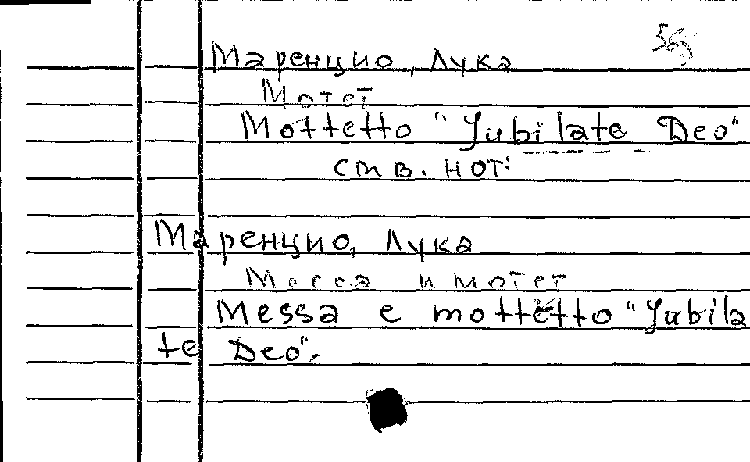 Маренцио, Лука
Мотет
Mottetto "Jubilate Deo"
см в. нот:
Маренцио, Лука
Месса и мотет
Messa e mottetto "Jubila
te Deo".